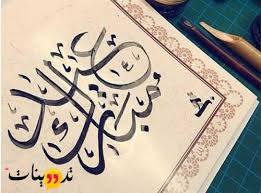 عيد
مبارك
تدوينات